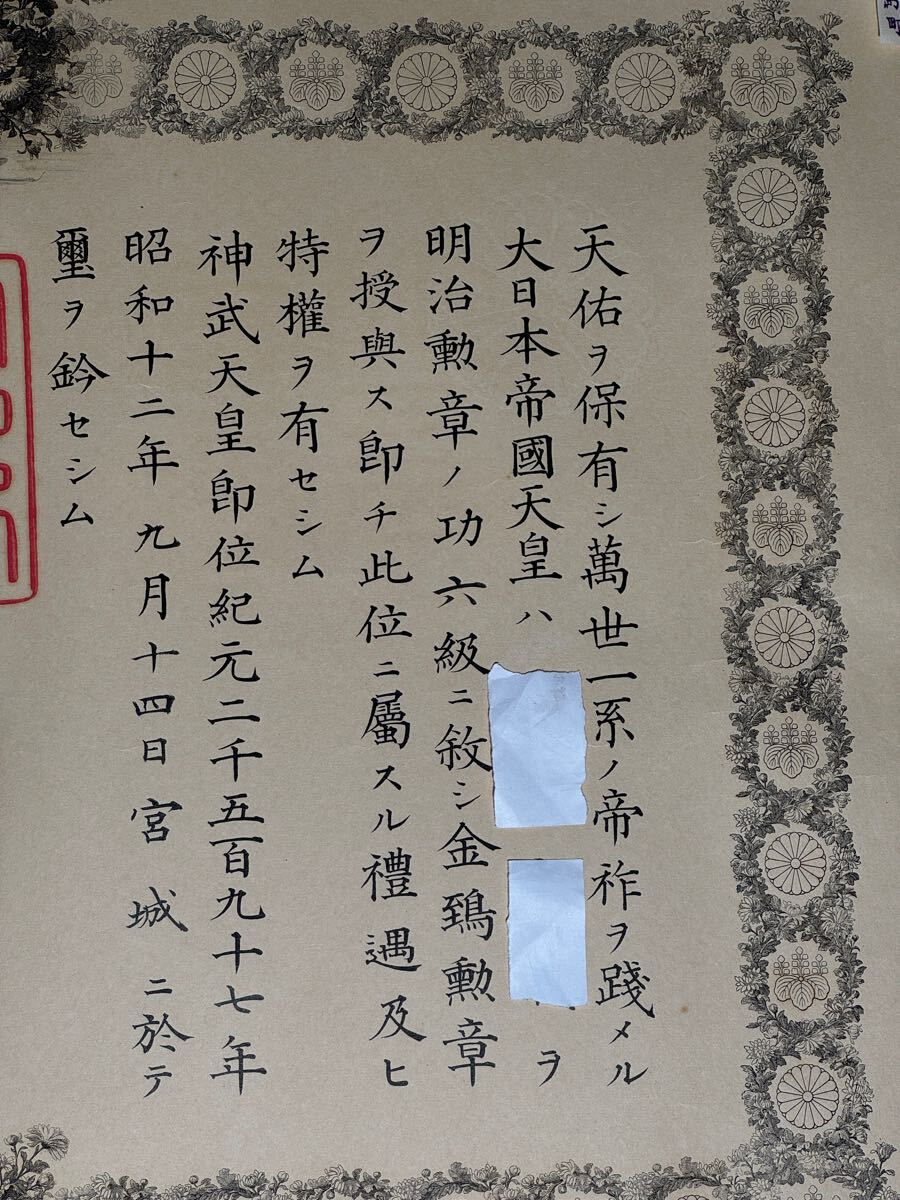 天佑ヲ保有シ萬世一系ノ帝祚ヲ踐メル
大日本帝國天皇ハ ヲ
明治勳章ノ功六級ニ敘シ金鵄勳章
ヲ授與ス卽チ此位ニ屬スル禮遇及ヒ
特權ヲ有セシム
神武天皇卽位紀元二千五百九十七年
昭和十二年九月十四日宮城ニ於テ
璽ヲ鈐セシム